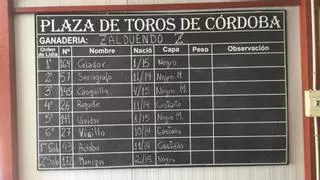 PLAZA DE TOROS DE CÓRDOBA
GANADERIA: ZALDUENDO Z
Orden de Lidia Nº Nombre Nació Capa Peso Observación
1º 164 Celador 1/15 Negro
2º 57 Seriógrafo 11/14 Negro M.
3º 145 Casquillo 4/15 Negro M.
4º 26 11/14 Castaño
5º 141 Vividor 1/15 Negro M.
6º 27 10/14 Castaño
1º Sob 93 11/14 Castaño
2º Sob 172 2/15 Negro